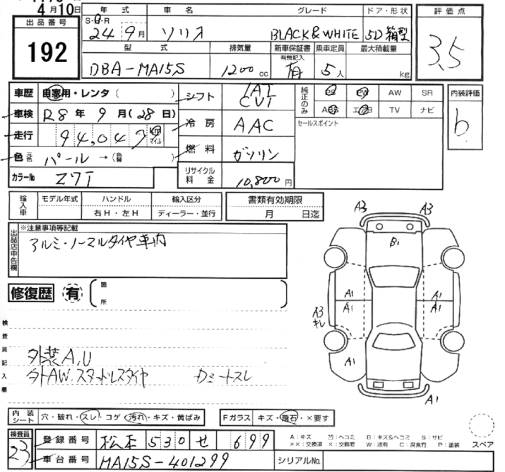 4月10日
出品番号
192
年式 車名 グレード ドア・形状
S・H・R
24年9月 ソリオ BLACK&WHITE 5D箱型
型式 排気量 新車保証書 乗車定員 最大積載量
有無記入
DBA-MA15S 1200cc 有 5人 kg
評価点
3.5
車歴 自家用・レンタ( )
車検 R8年9月(28日)
走行 94,047 km マイル
色 パール→( )
カラーNo Z7T
シフト IAT CVT
冷房 AAC
燃料 ガソリン
リサイクル料金 10,800円
純正のみ
AW SR
TV ナビ
セールスポイント
内装評価
b
輸入車 モデル年式 ハンドル 輸入区分
右H・左H ディーラー・並行
書類有効期限
月 日迄
出品店申告欄
※注意事項等記載
アルミ・ノーマルタイヤ車内
修復歴 有
箇所
検査員記入欄
外装A,U
外AW.スタッドレスタイヤ
A3 A3
B1
A1 A1
A3 キレ
A1 A1
A1 A1
A1
内装シート 穴・破れ・スレ・コゲ・汚れ・キズ・黄ばみ
Fガラス キズ・飛石・×要す
検査員
23
登録番号 松本 530 せ 699
車台番号 MA15S-401299
シリアルNo.
A:キズ U:ヘコミ B:キズ&ヘコミ S:サビ
X:要交換 XX:交換済 W:波 C:腐食 P:塗装
スペア